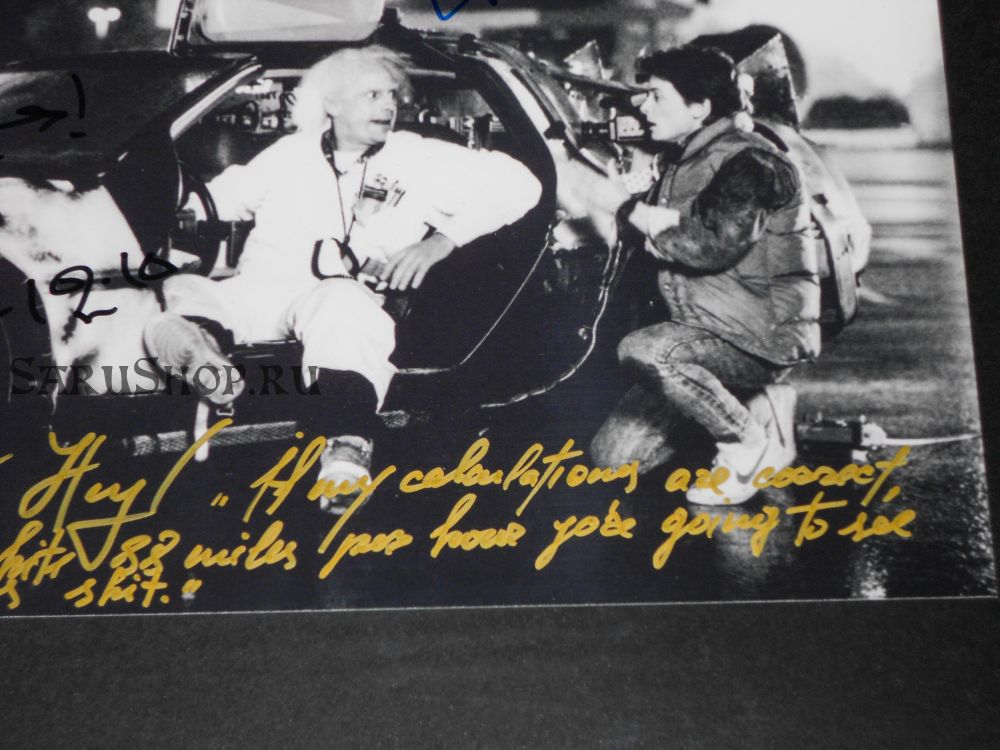 19:10
SaruShop.ru
Hey! "If my calculations are correct,
hits 88 miles per hour you're going to see
s shit."